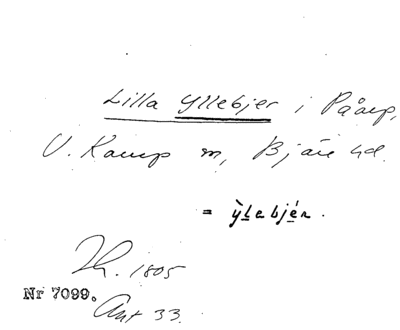 Lilla Yllebjer i Påarp,
V. Karup sn, Bjäre hd.
= ỳlebjér.
Th. 1805
Nr 7099.
Ant 33.